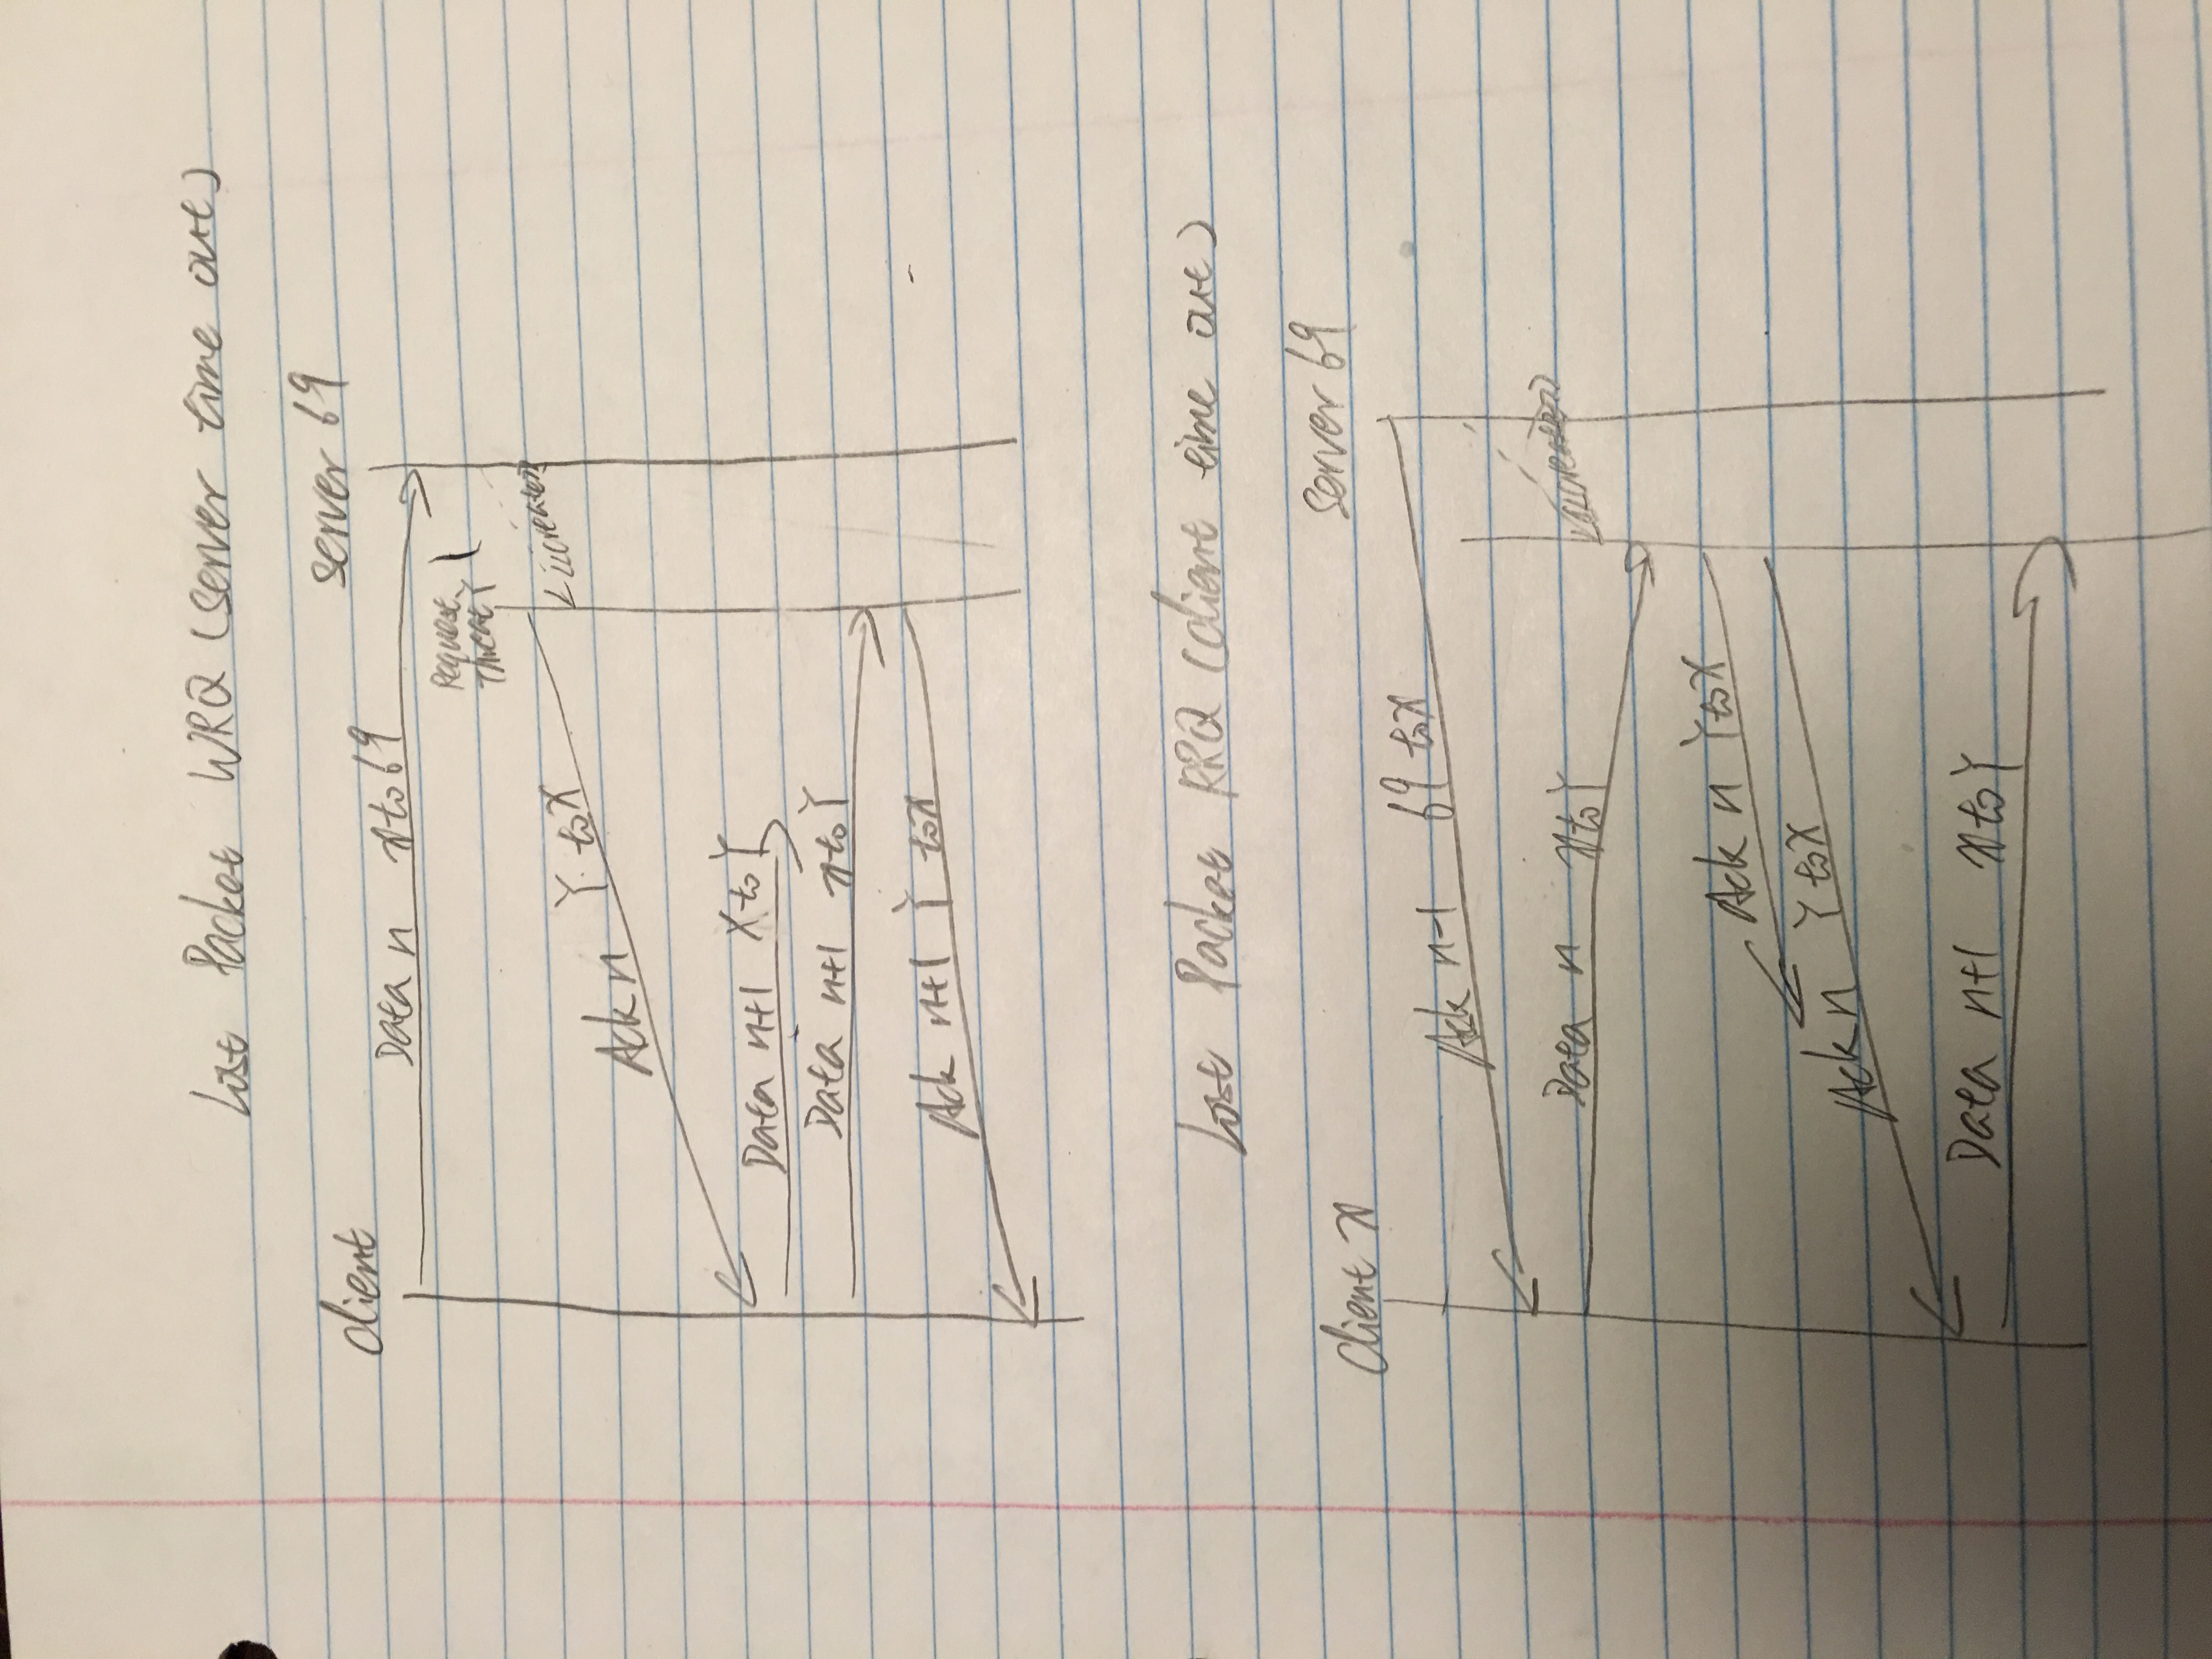 Lost Packet WRQ (server time out)
client
server 69
Data n x to 69
Request
Threat Y
<<create>>
Ack n Y to X
Data n+1 X to Y
Data n+1 x to Y
Ack n+1 Y to x
Lost Packet RRQ (client time out)
client x
server 69
Ack n-1 69 to x
<<create>>
Data n x to Y
Ack n Y to X
Ack n Y to X
Data n+1 x to Y